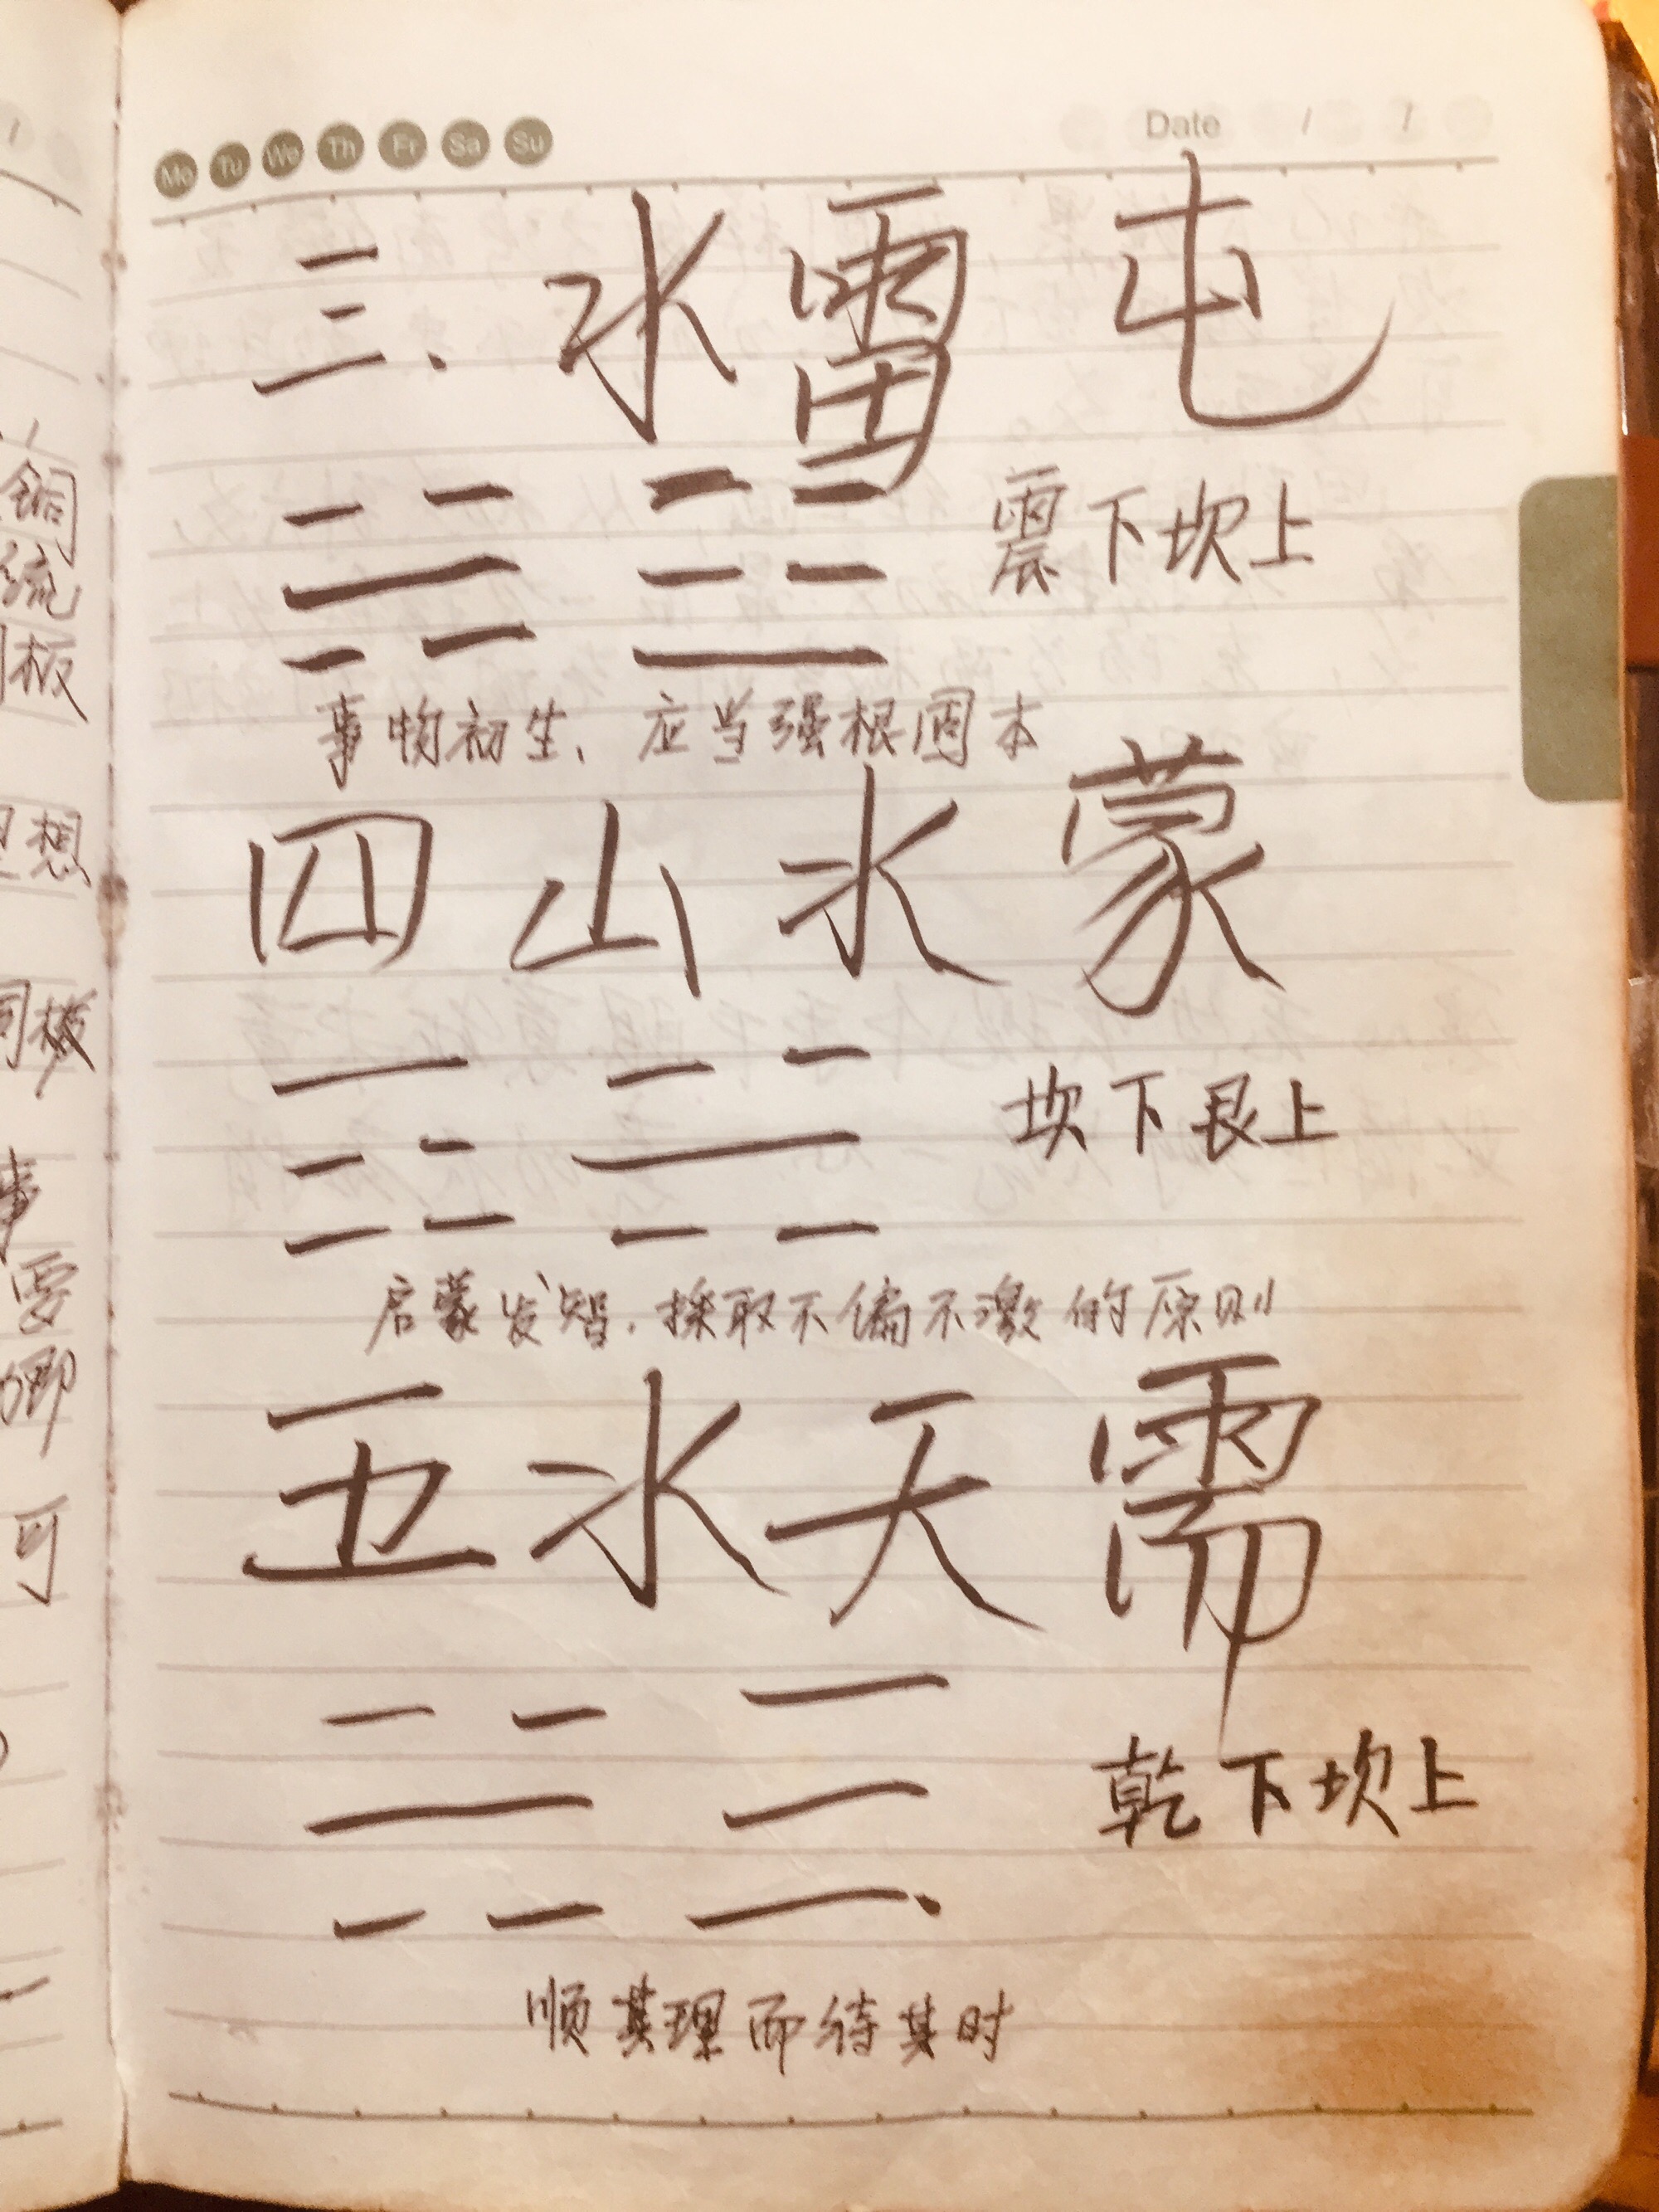 Mo Tu We Th Fr Sa Su
Date / /
三、水雷 屯
震下坎上
事物初生、应当强根固本
四 山水 蒙
坎下艮上
启蒙发智.採取不偏不激的原则
五 水天 需
乾下坎上
顺其理而待其时